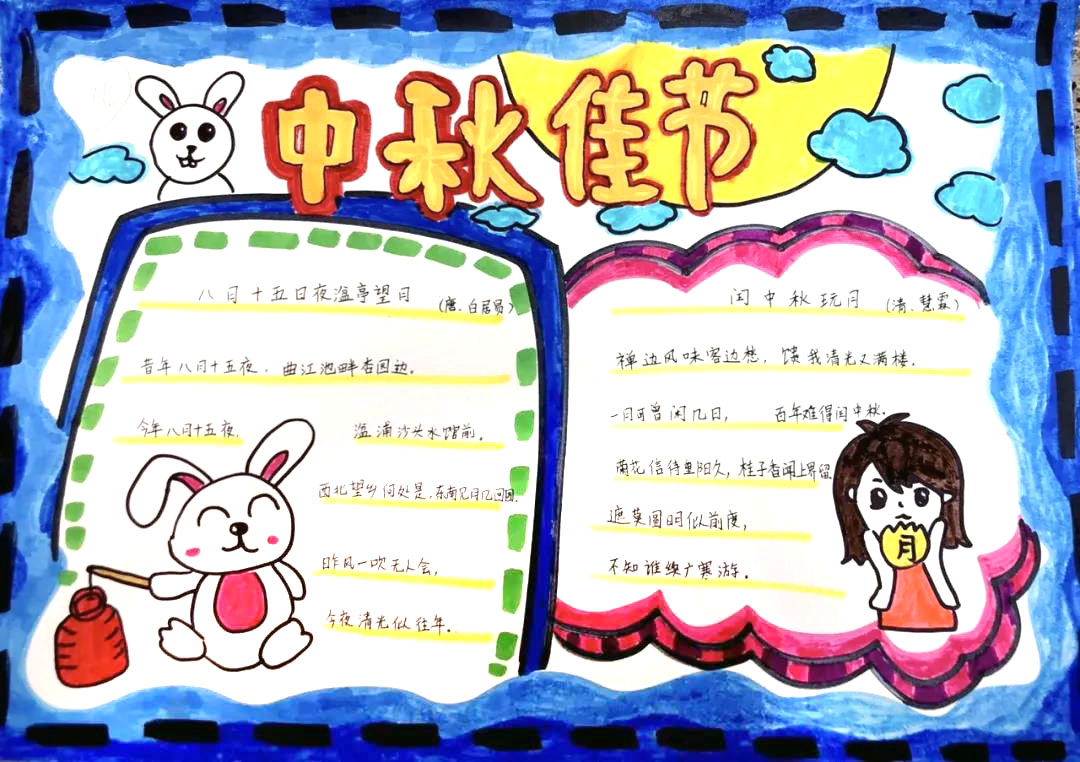 中秋佳节
八月十五日夜湓亭望月
(唐、白居易)
昔年八月十五夜，曲江池畔杏园边。
今年八月十五夜， 湓浦沙头水馆前。
西北望乡何处是，东南见月几回圆。
昨风一吹无人会，
今夜清光似往年。
闰中秋玩月 (清、慧霖)
禅边风味客边愁，馈我清光又满楼。
一月可曾闲几日， 百年难得闰中秋。
菊花信待重阳久，桂子香闻上界留。
遮莫圆明似前度，
不知谁续广寒游。
月